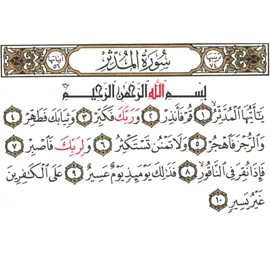 سُورَةُ المُدَّثِّرِ
بِسْمِ اللَّهِ الرَّحْمَٰنِ الرَّحِيمِ
يَٰٓأَيُّهَا الْمُدَّثِّرُ ١ قُمْ فَأَنذِرْ ٢ وَرَبَّكَ فَكَبِّرْ ٣ وَثِيَابَكَ فَطَهِّرْ ٤
وَالرُّجْزَ فَاهْجُرْ ٥ وَلَا تَمْنُن تَسْتَكْثِرُ ٦ وَلِرَبِّكَ فَاصْبِرْ ٧
فَإِذَا نُقِرَ فِي النَّاقُورِ ٨ فَذَٰلِكَ يَوْمَئِذٍ يَوْمٌ عَسِيرٌ ٩ عَلَى الْكَٰفِرِينَ
غَيْرُ يَسِيرٍ ١٠